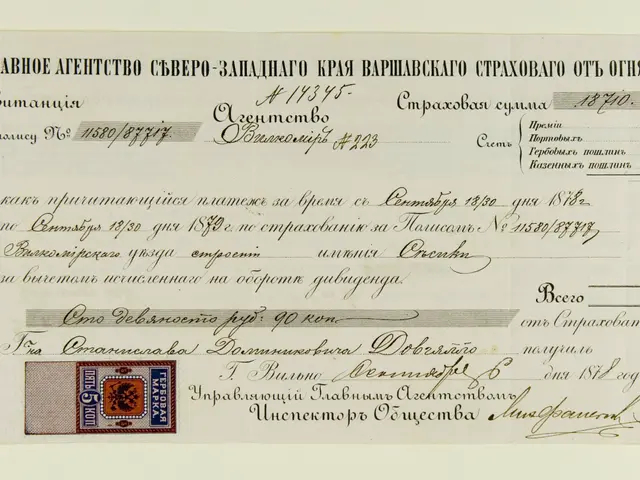 ЛАВНОЕ АГЕНТСТВО СѢВЕРО-ЗАПАДНАГО КРАЯ ВАРШАВСКАГО СТРАХОВАГО ОТЪ ОГНЯ
витанція № 14345. Страховая сумма 18710.
Агентство
полису № 11580/87717. Вилкомиръ № 223 Счетъ
Преміи
Портовыхъ
Гербовыхъ пошлин
Казенныхъ пошлин
какъ причитающійся платежъ за время съ Сентября 18/30 дня 1878 г
по Сентября 18/30 дня 1879 г. по страхованію за Полисомъ № 11580/87717,
Вилкомірскаго уѣзда строеній имѣнія Сѣсики
за вычетомъ исчисленнаго на оборотѣ дивиденда.
Всего
Сто девяносто руб: 90 коп. отъ Страховат
Гна Станислава Доминиковича Довгялло получилъ
Г. Вильно Сентября 6 дня 1878 год
Управляющій Главнымъ Агентствомъ
Инспекторъ Общества
ГЕРБОВАЯ МАРКА
ПЯТЬ 5 КОП.